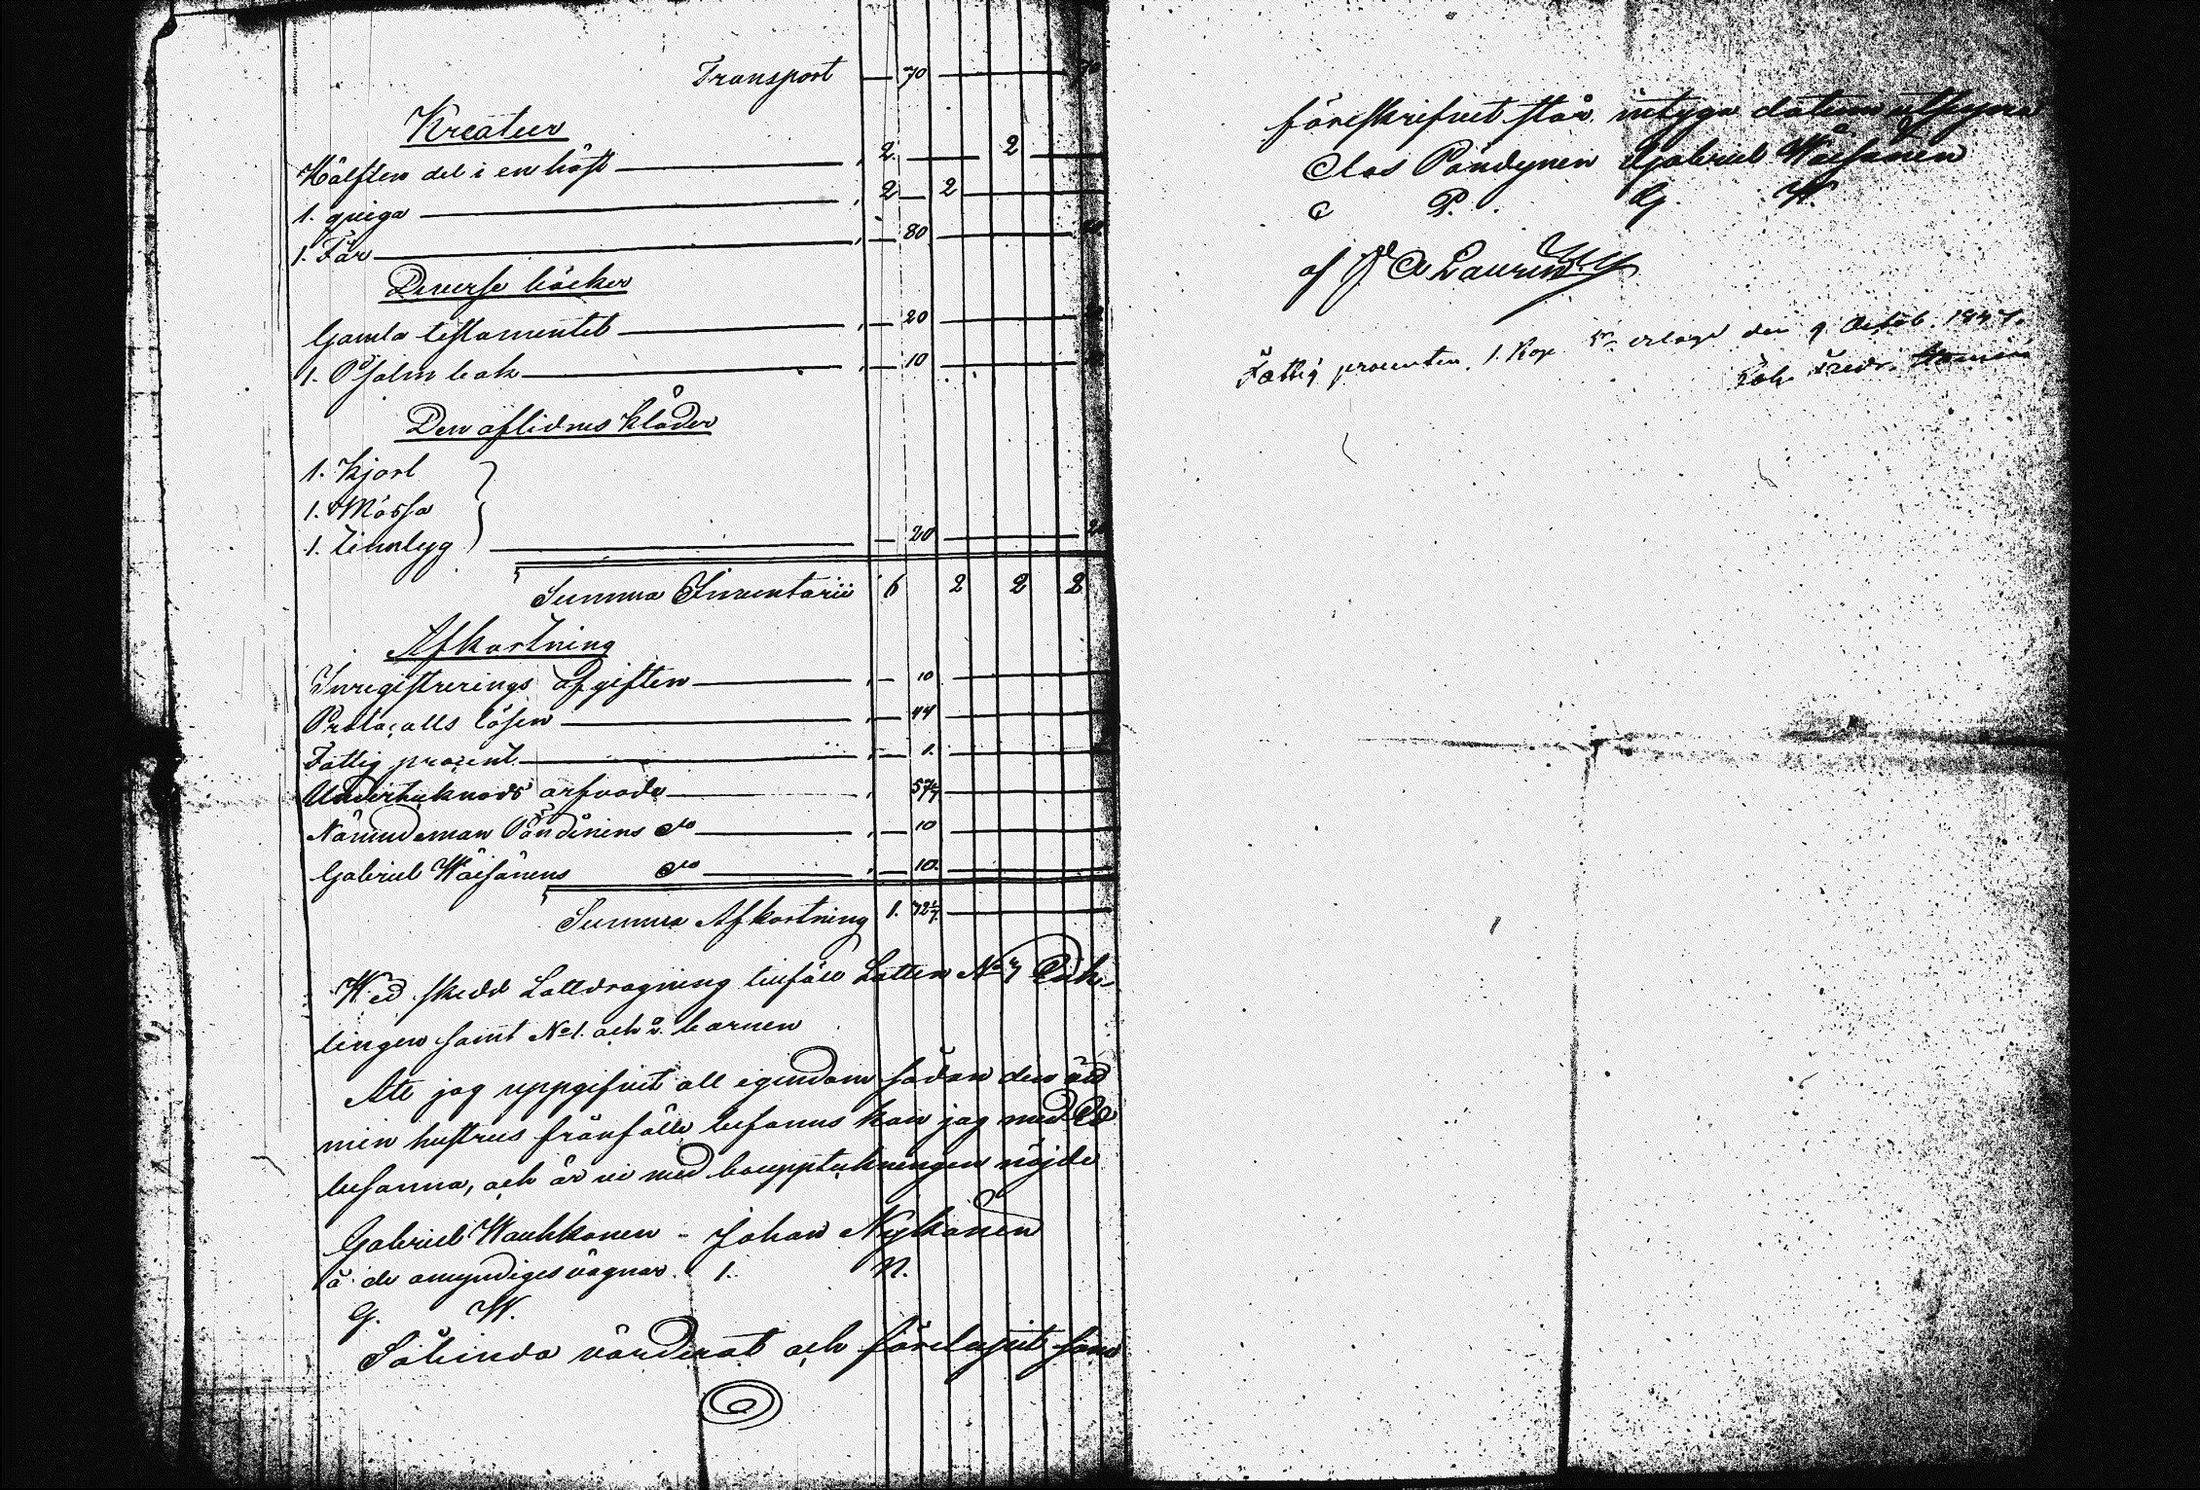 Transport — 70 — 70
Kreatur
Hälften del i en häst — 2. — 2 —
1. quiga — 2 — 2 —
1. Får — 80 —
Diverse böcker
Gamla testamentet — 20 —
1. Psalm bok — 10 —
Den aflidnes kläder
1. Kjorl
1. Mössa
1. Linntyg — 20 — 20
Summa Inventarii 6 2 2 2
Afkortning
Inregistrerings afgiften — 10 —
Protocolls lösen — 44 —
Fattig procent — 1. —
Undertecknads arfvode — 57 1/7 —
Nämndeman Pöndinens do — 10 —
Gabriel Wäisänens do — 10. —
Summa Afkortning 1. 32 1/7 —
Wed skedd Lottdragning tillföll Lotten No 3 Enk-
lingen samt No 1. och 2. barnen
Att jag uppgifvit all egendom sådan den vid
min hustrus frånfälle befanns kan jag med Ed
besanna, och är vi med bouppteckningen nöjde
Gabriel Waukkonen - Johan Nykänen
å de omyndiges vägnar. I. N.
G. W.
Sålunda värderat och förelupit som
föreskrifvit står intyga datum utsupra
Clas Pöndynen Gabriel Wäisänen
C P. G. W.
af J A Laurin
Fattig procenten 1. Kop. Sr erlagt den 9 Octob. 1847.
Joh. Fredr.